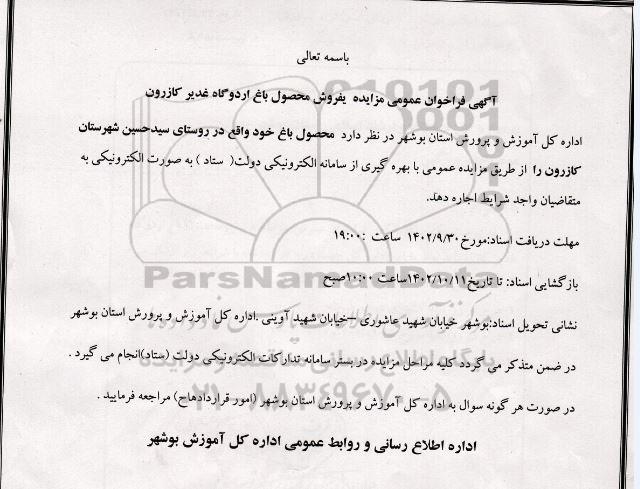 باسمه تعالی
آگهی فراخوان عمومی مزایده یفروش محصول باغ اردوگاه غدیر کازرون
اداره کل آموزش و پرورش استان بوشهر در نظر دارد محصول باغ خود واقع در روستای سیدحسین شهرستان
کازرون را از طریق مزایده عمومی با بهره گیری از سامانه الکترونیکی دولت( ستاد ) به صورت الکترونیکی به
متقاضیان واجد شرایط اجاره دهد.
مهلت دریافت اسناد:مورخ۱۴۰۲/۹/۳۰ ساعت ۱۹:۰۰
بازگشایی اسناد: تا تاریخ۱۴۰۲/۱۰/۱۱ساعت ۱۰:۰۰صبح
ParsNamadData
نشانی تحویل اسناد:بوشهر خیابان شهید عاشوری –خیابان شهید آوینی .اداره کل آموزش و پرورش استان بوشهر
در ضمن متذکر می گردد کلیه مراحل مزایده در بستر سامانه تدارکات الکترونیکی دولت (ستاد)انجام می گیرد .
۰۲۱-۸۸۳۴۹۶۷۰-۵
در صورت هر گونه سوال به اداره کل آموزش و پرورش استان بوشهر (امور قراردادهاح) مراجعه فرمایید .
اداره اطلاع رسانی و روابط عمومی اداره کل آموزش بوشهر